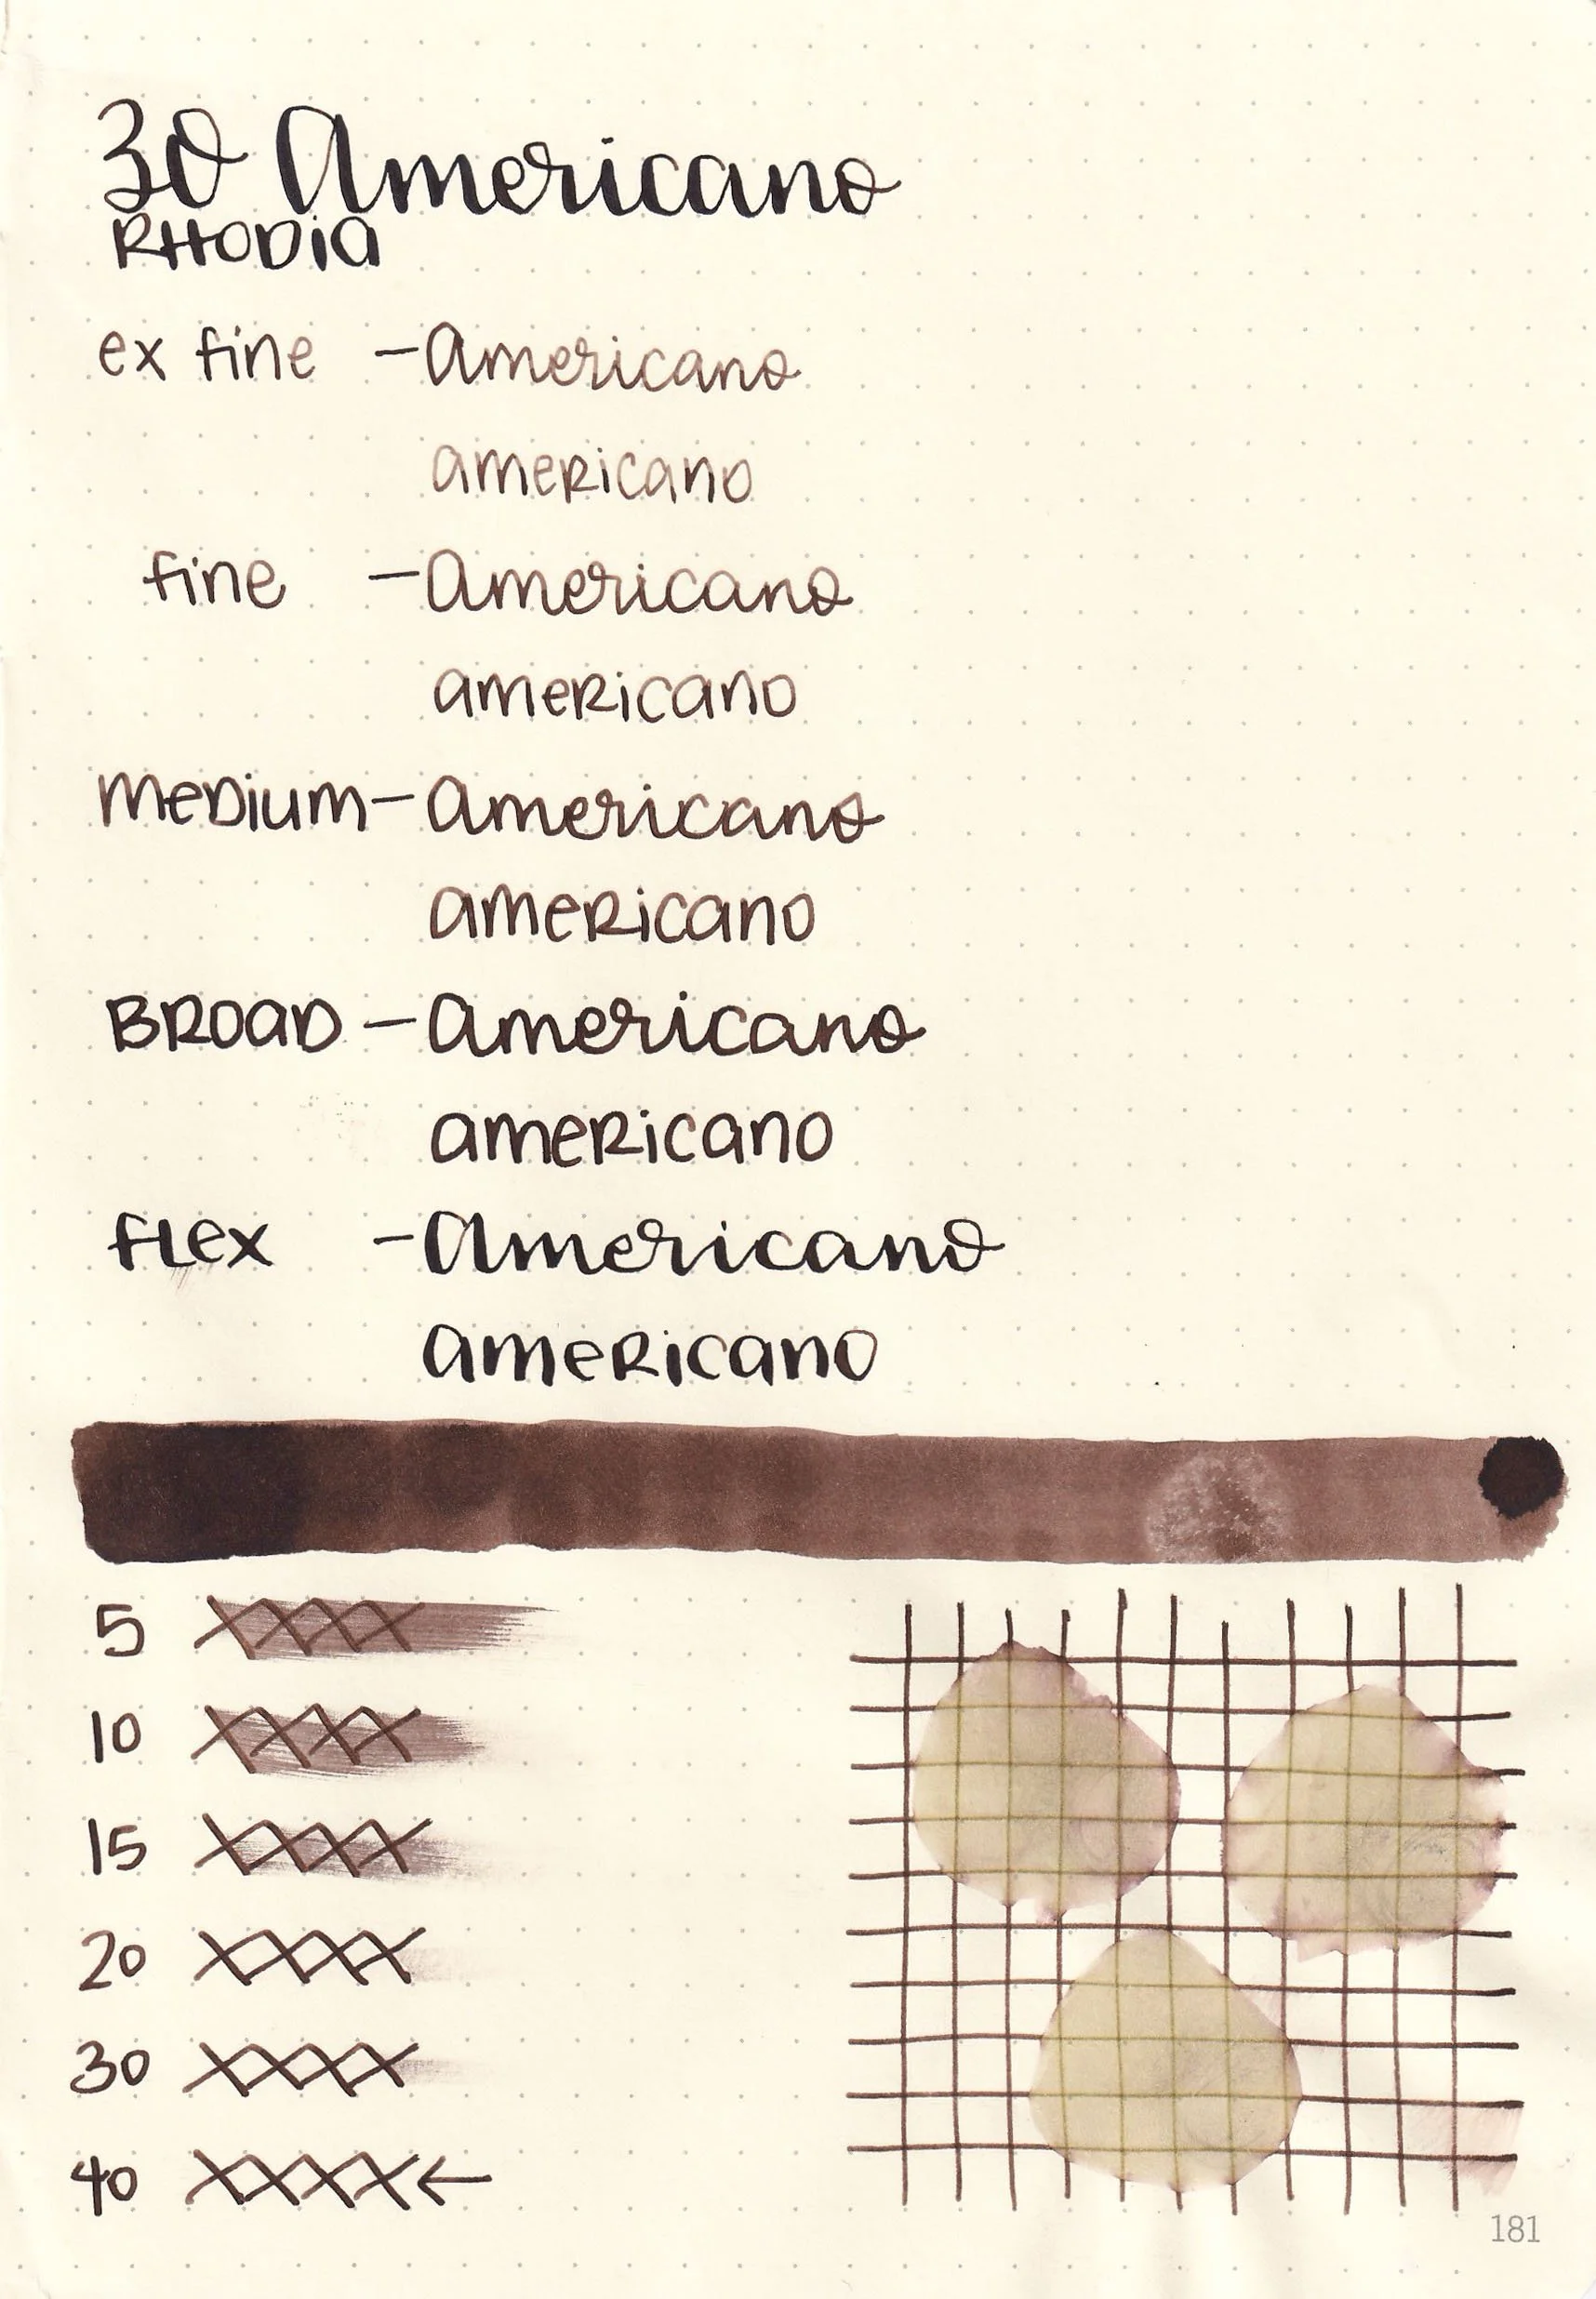 30 Americano
RHODIA
ex fine - Americano
americano
fine - Americano
americano
medium - Americano
americano
BROAD - Americano
americano
flex - Americano
americano
5 XXXX
10 XXXX
15 XXXX
20 XXXX
30 XXXX
40 XXXX ←
181